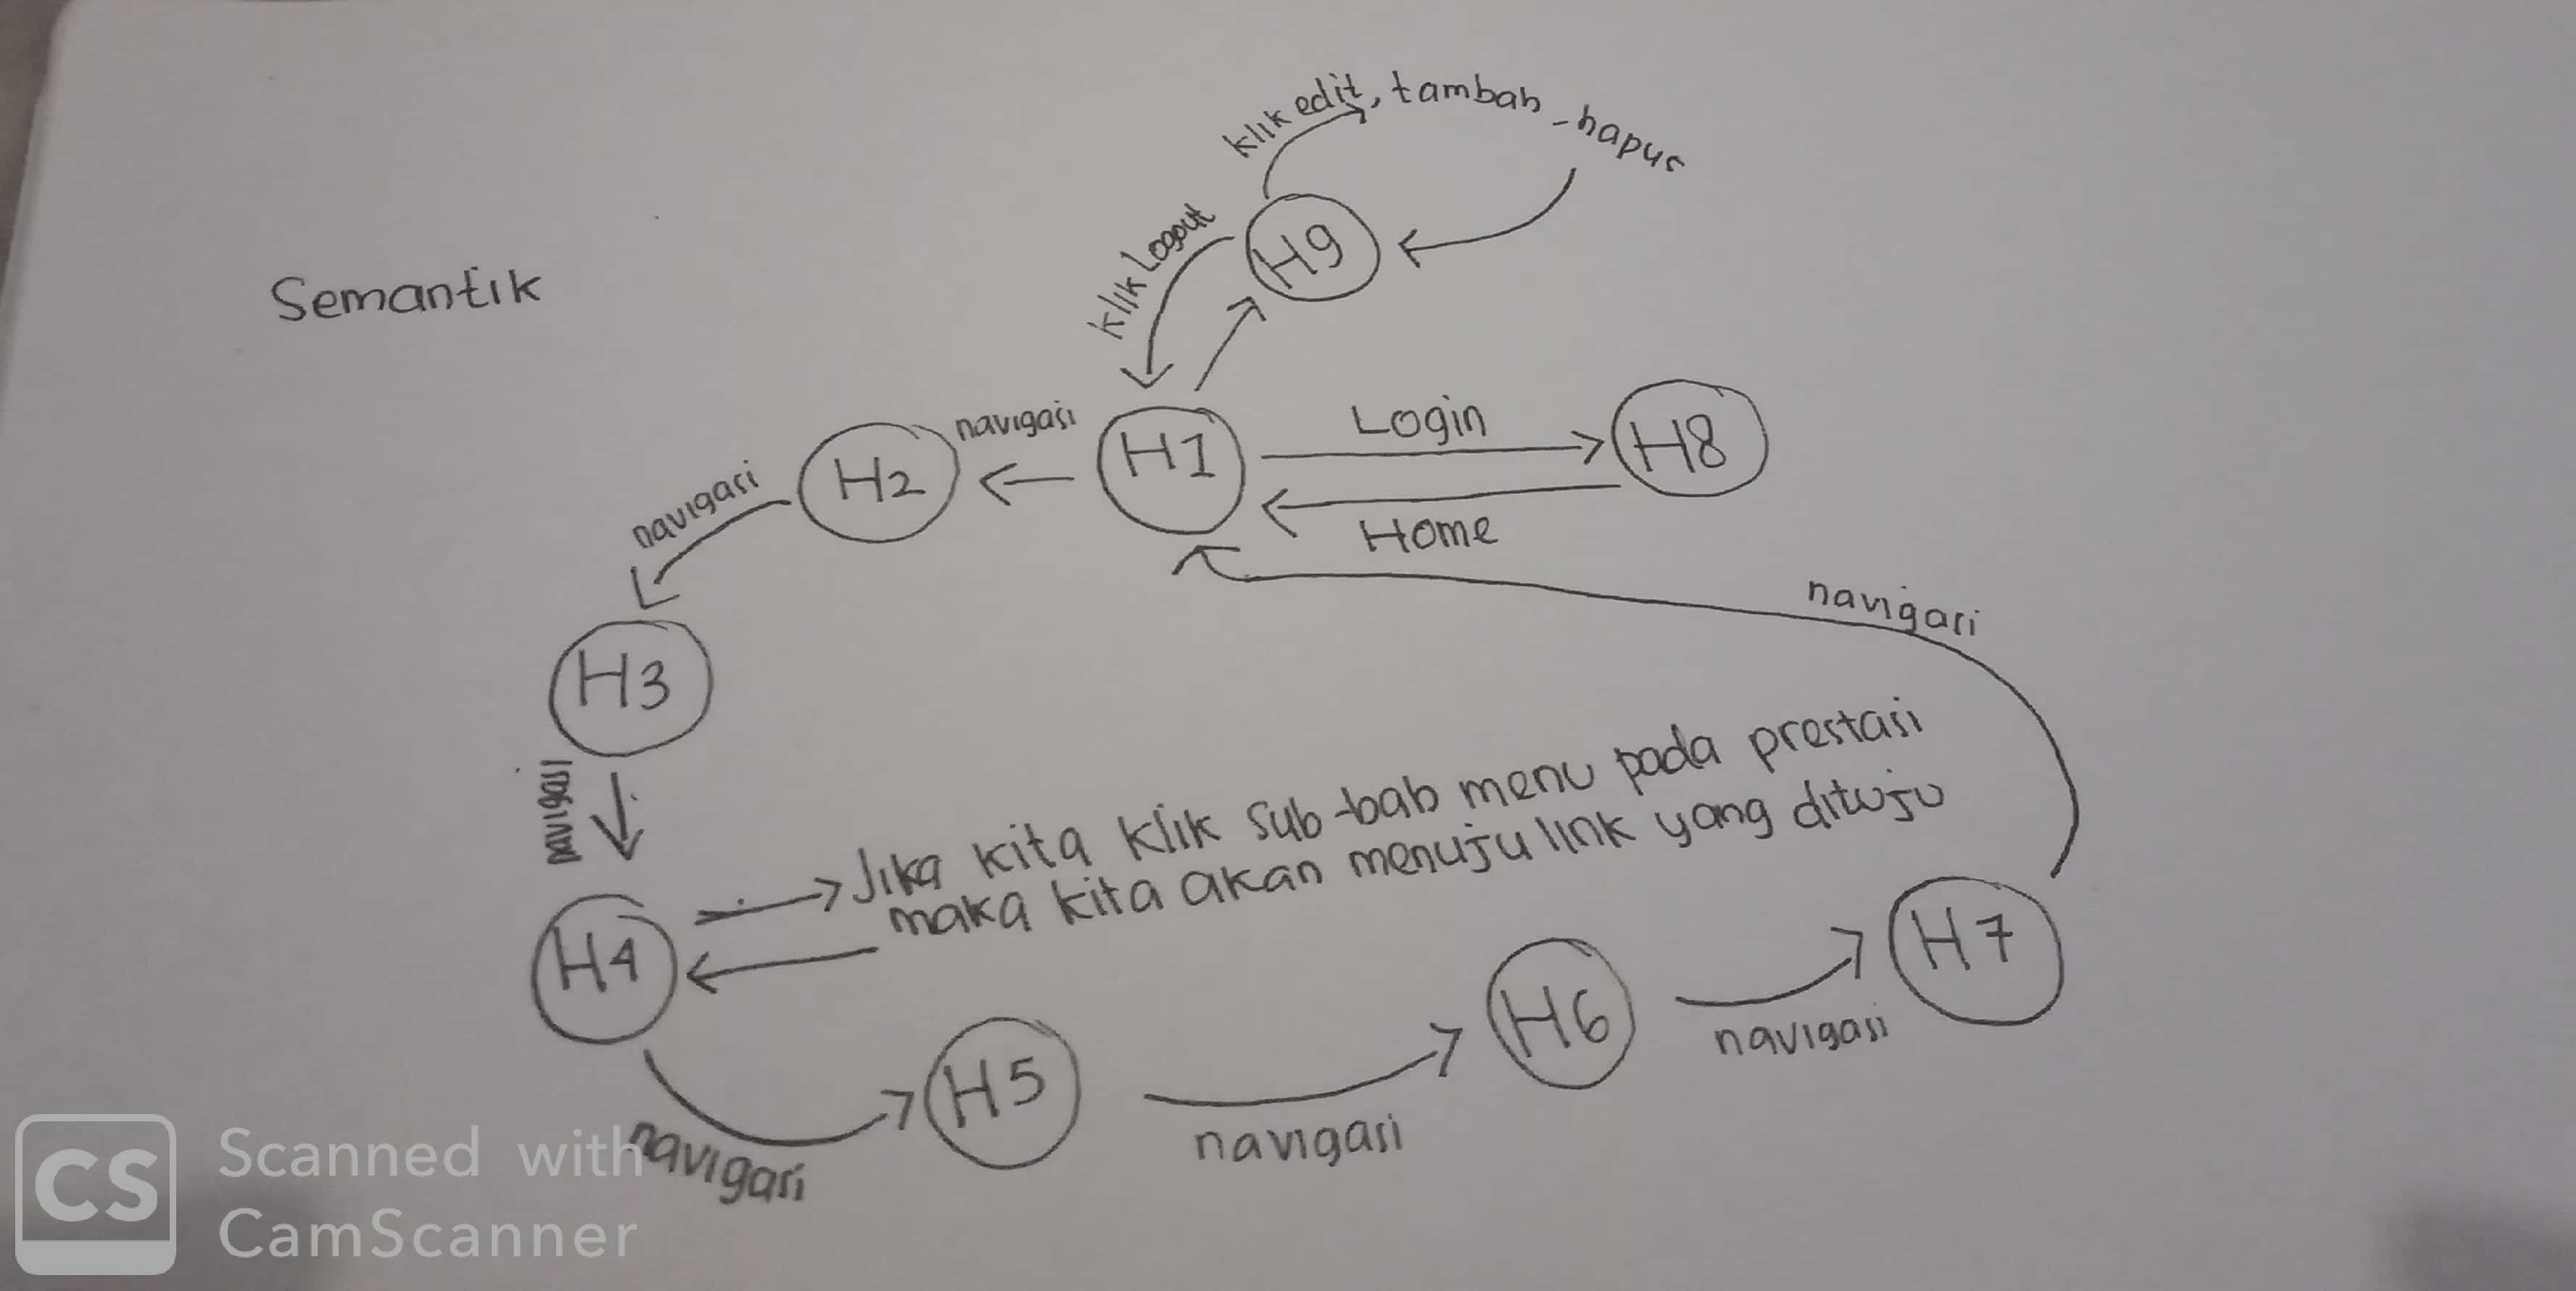 klik edit, tambah, hapus
Semantik
klik Logout
H9
navigasi
H1
Login
H8
H2
Home
navigasi
navigasi
H3
navigasi
Jika kita klik sub-bab menu pada prestasi
maka kita akan menuju link yang dituju
H4
H7
H6
navigasi
H5
navigasi
navigasi
CS
Scanned with
CamScanner